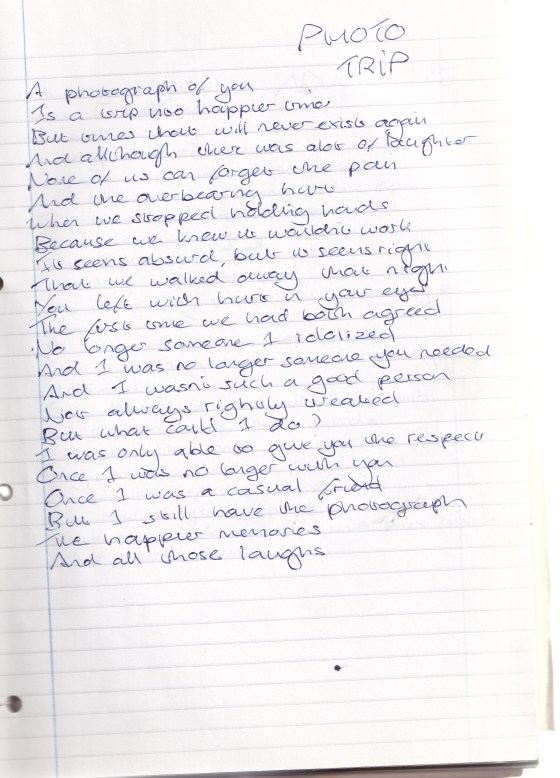 PHOTO
TRIP
A photograph of you
Is a trip too happier time
But times that will never exist again
And allthough there was alot of laughter
None of us can forget the pain
And the overbearing hurt
When we stopped holding hands
Because we knew it wouldn't work
It seems absurd, but it seems right
That we walked away that night
You left with hurt in your eyes
The first time we had both agreed
No longer someone I idolized
And I was no longer someone you needed
And I wasn't such a good person
Not always rightly treated
But what could I do?
I was only able to give you the respect
Once I was no longer with you
Once I was a casual friend
But I still have the photograph
The happier memories
And all those laughs